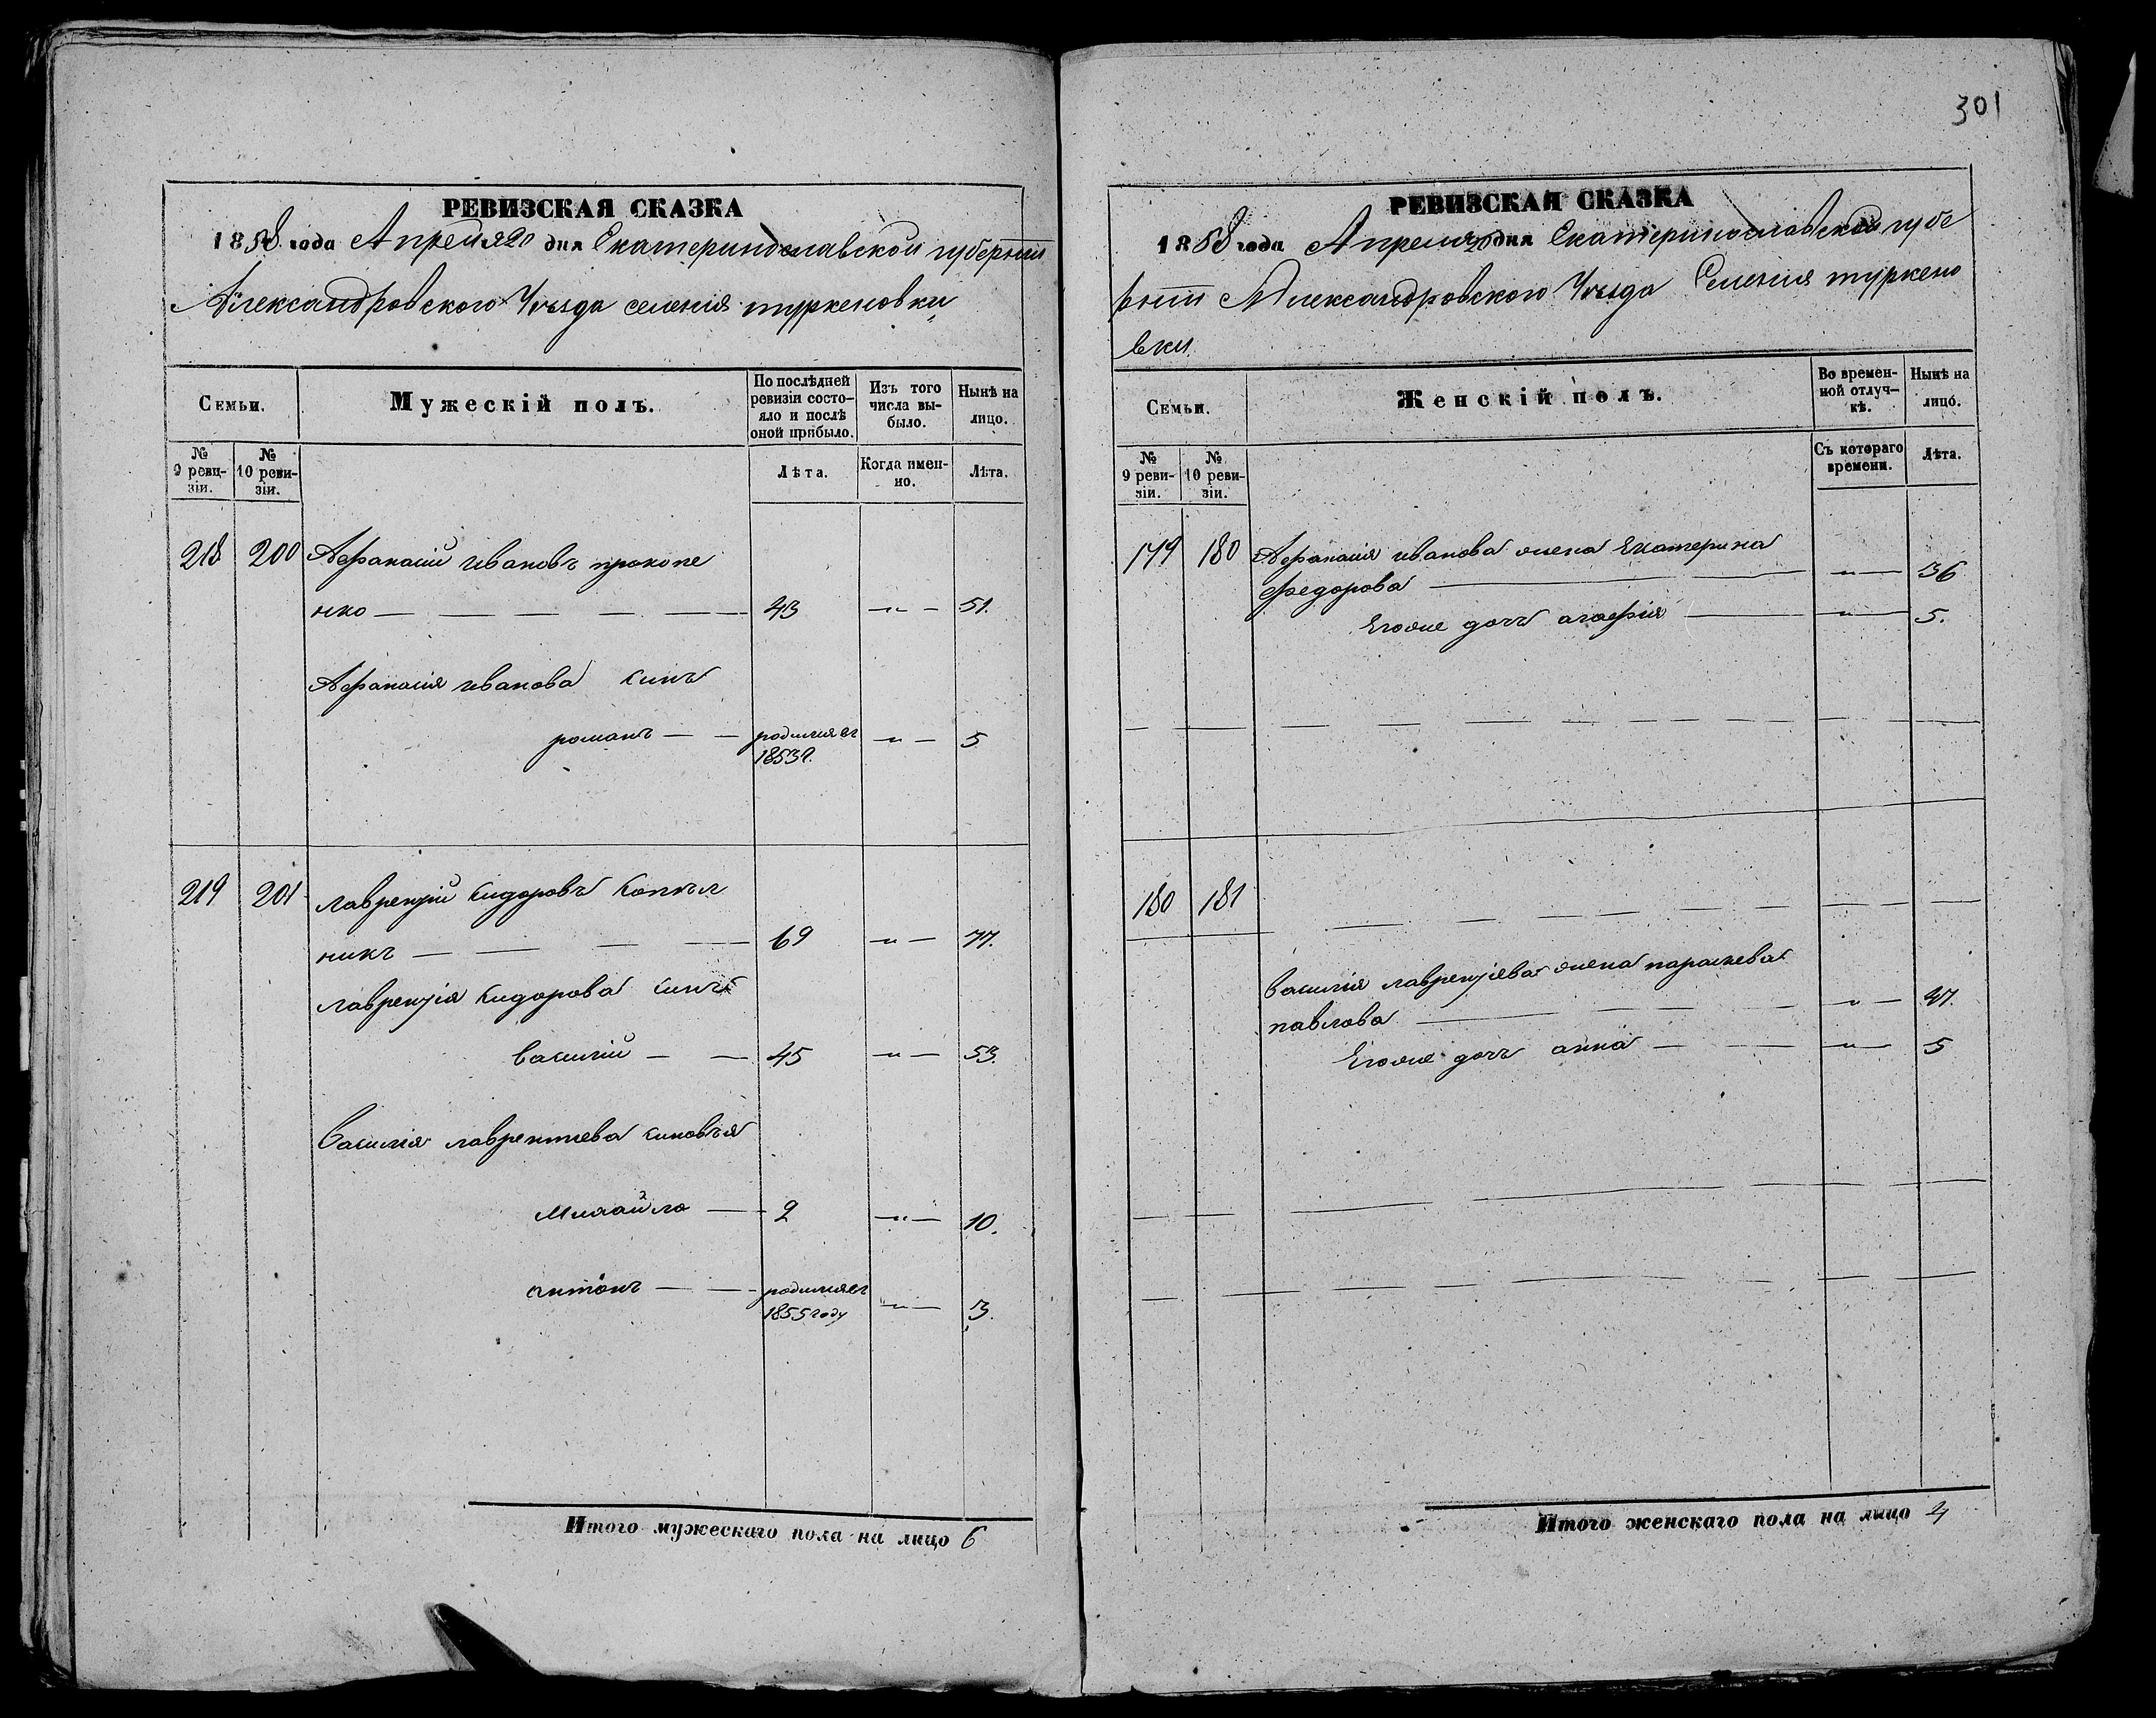 301
РЕВИЗСКАЯ СКАЗКА
1858 года Апреля 20 дня Екатеринославской губернии
Александровского Уѣзда селенія туркеновки
Семьи.
Мужескій полъ.
По послѣдней ревизіи состояло и послѣ оной прибыло.
Изъ того числа выбыло.
Нынѣ на лицо.
№ 9 ревизіи.
№ 10 ревизіи.
Лѣта.
Когда именно.
Лѣта.
218 200 Афанасій ивановъ прокопе
нко — 43 — „ — 51.
Афанасія иванова синъ
романъ — — родился въ 1853 г. — „ — 5
219 201 лаврентій сидоровъ
никъ — 69 — „ — 77.
лаврентія сидорова синъ
василій — — 45 — „ — 53.
Василія лаврентиева синовъя
Михайло — 2 — „ — 10.
антонъ — — родился въ 1855 году — „ — 3.
Итого мужескаго пола на лицо 6
РЕВИЗСКАЯ СКАЗКА
1858 года Апреля 20 дня Екатеринославской губе
рнии Александровского Уѣзда Селенія туркено
вки
Семьи.
Женскій полъ.
Во временной отлучкѣ.
Нынѣ на лицо.
№ 9 ревизіи.
№ 10 ревизіи.
Съ котораго времени.
Лѣта.
179 180 Афанасія иванова жена Екатерина
федорова — „ — 36
Егоже дочь агафія — „ — 5.
180 181
Василія лаврентіева жена параскева
павлова — „ — 47.
Егоже дочъ анна — „ — 5
Итого женскаго пола на лицо 4